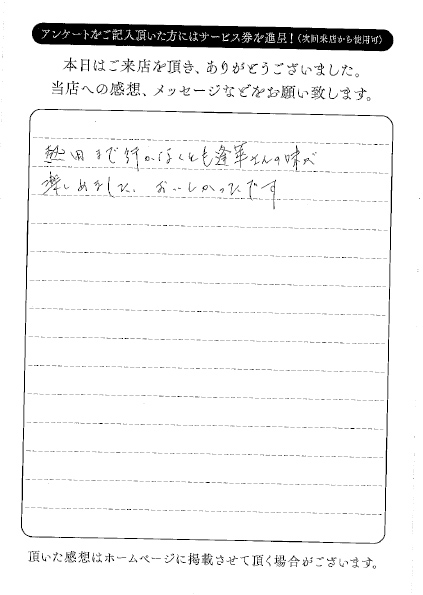 アンケートをご記入頂いた方にはサービス券を進呈!(次回来店から使用可)
本日はご来店を頂き、ありがとうございました。
当店への感想、メッセージなどをお願い致します。
熱田まで行かなくとも蓬莱さんの味が
楽しめました。おいしかったです
頂いた感想はホームページに掲載させて頂く場合がございます。